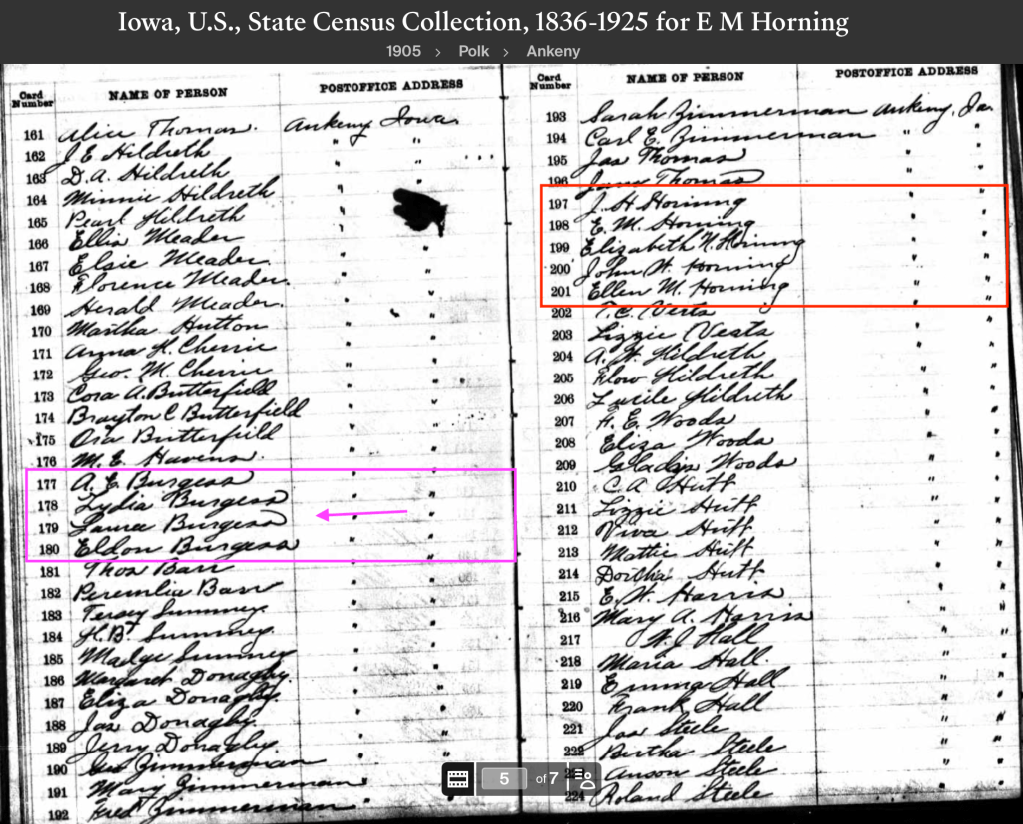 Iowa, U.S., State Census Collection, 1836-1925 for E M Horning
1905 > Polk > Ankeny
Card Number NAME OF PERSON POSTOFFICE ADDRESS
161 Alice Thomas. Ankeny Iowa.
162 J E Hildreth " "
163 D.A. Hildreth " "
164 Minnie Hildreth "
165 Pearl Hildreth "
166 Ellis Meader " "
167 Elsie Meader. " "
168 Florence Meader. " "
169 Herald Meader. "
170 Martha Hutton " "
171 Anna H. Cherrie " "
172 Geo. M. Cherrie " "
173 Cora A. Butterfield " "
174 Brayton C Butterfield " "
175 Ora Butterfield " "
176 M. E. Havens. " "
177 A. E. Burgess " "
178 Lydia Burgess " "
179 Laura Burgess " "
180 Eldon Burgess " "
181 Thos Barr " "
182 Barr " "
183 Summey " "
184 H. B. Summey. " "
185 Madge Summey " "
186 Margaret Donaghy. " "
187 Eliza Donaghy. " "
188 Jas Donaghy. " "
189 Jerry Donaghy. " "
190 Geo Zimmerman
191 Mary Zimmerman "
192 Fred Zimmerman "
Card Number NAME OF PERSON POSTOFFICE ADDRESS
193 Sarah Zimmerman Ankeny, Ia.
194 Carl E. Zimmerman " "
195 Jas Thomas " "
196 Thomas " "
197 J. H. Horning " "
198 E. M. Horning " "
199 Elizabeth N. Horning " "
200 John W. Horning " "
201 Ellen M. Horning " "
202 T. C. Vesta " "
203 Lizzie Vesta " "
204 A. W. Hildreth " "
205 Flow Hildreth " "
206 Lucile Hildreth " "
207 F. E. Woods " "
208 Eliza Woods " "
209 Gladys Woods " "
210 C A Huff " "
211 Lizzie Huff " "
212 Viva Huff " "
213 Mattie Huff " "
214 Huff " "
215 E. W. Harris " "
216 Mary A. Harris " "
217 W. J. Hall " "
218 Maria Hall. " "
219 Emma Hall " "
220 Frank Hall " "
221 Jas Steele " "
222 Bertha Steele " "
Anson Steele " "
224 Roland Steele " "
5 of 7